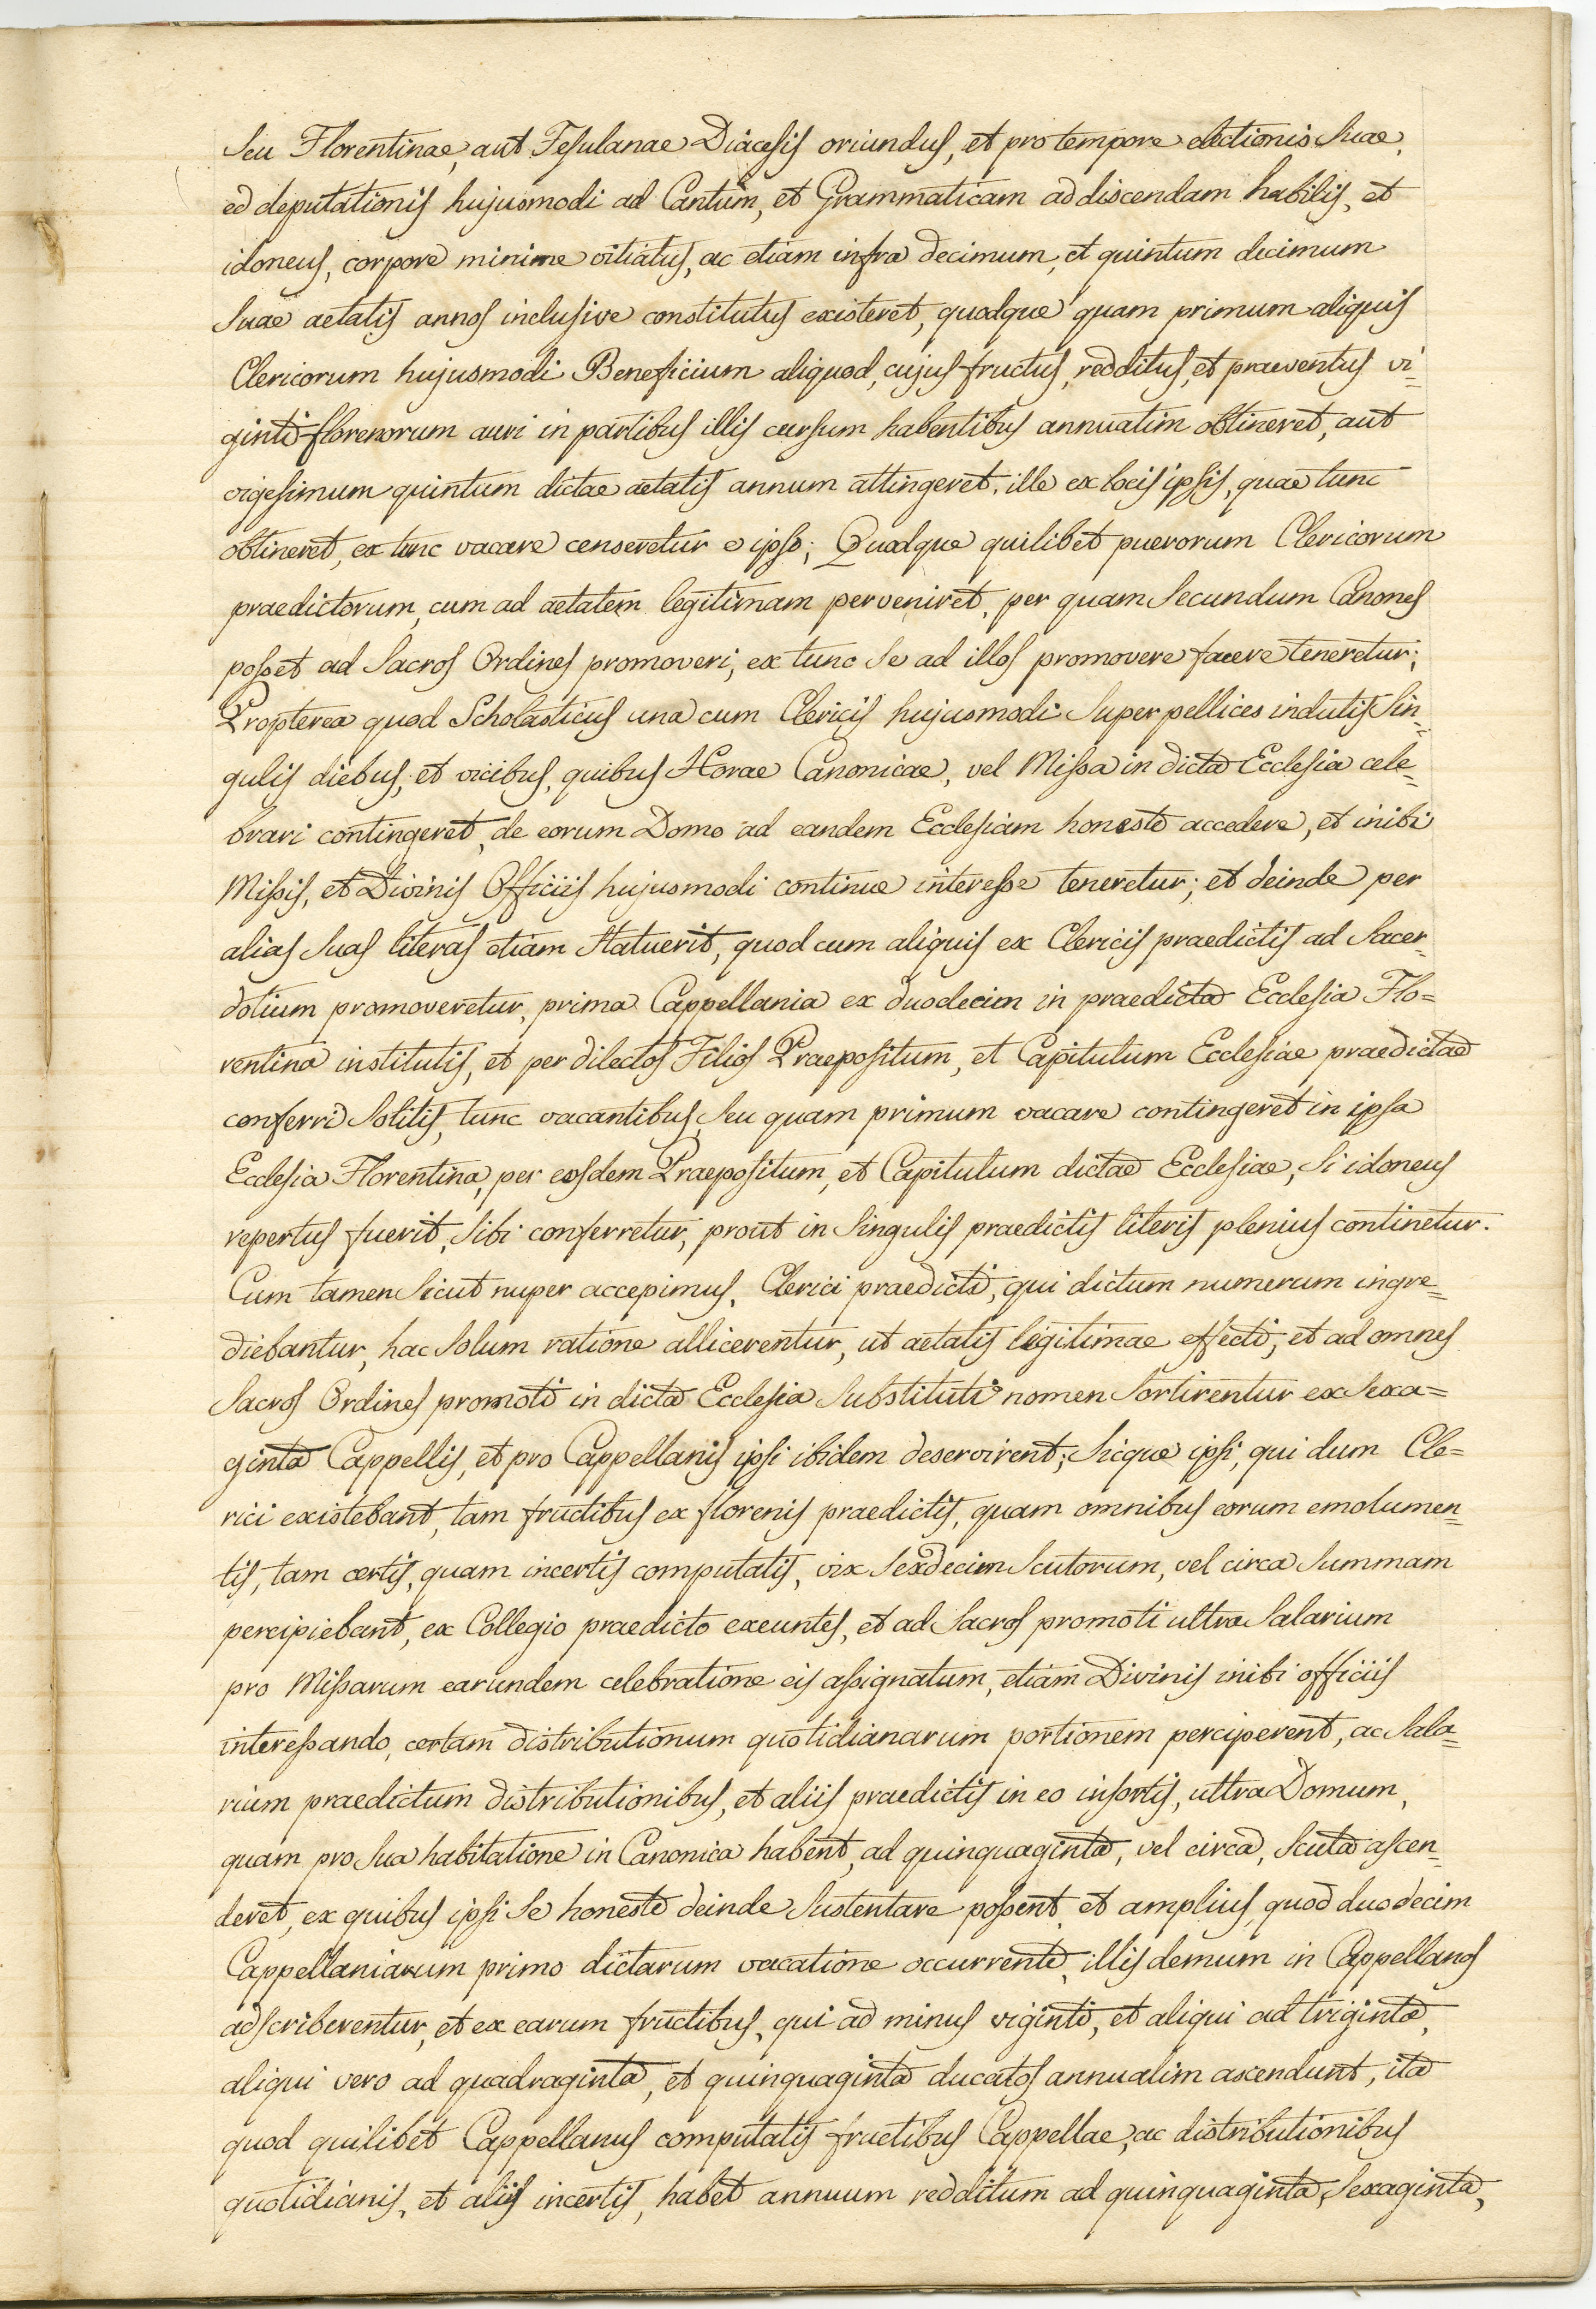 seu Florentinae, aut Fesulanae Diacesis oriundus, et pro tempore electionis suae,
ed deputationis hujusmodi ad Cantum, et Grammaticam addiscendam habilis, et
idoneus, corpore minime vitiatus, ac etiam infra decimum, et quintum decimum
suae aetatis annos inclusive constitutus existeret, quodque quam primum aliquis
Clericorum hujusmodi Beneficium aliquod, cujus fructus, redditus, et praeventus vi=
ginti florenorum auri in partibus illis cursum habentibus annuatim obtineret, aut
vigesimum quintum dictae aetatis annum attingeret, ille ex locis ipsis, quae tunc
obtineret, ex tunc vacare censeretur e ipso; Quodque quilibet puerorum Clericorum
praedictorum, cum ad aetatem legitimam perveniret, per quam secundum Canones
posset ad Sacros Ordines promoveri, ex tunc se ad illos promovere facere teneretur;
Propterea quod Scholasticus una cum Clericis hujusmodi superpellices indutis sin=
gulis diebus, et vicibus, quibus Horae Canonicae, vel Missa in dicta Ecclesia cele=
brari contingeret, de eorum Domo ad eandem Ecclesiam honeste accedere, et inibi
Missis, et Divinis Officiis hujusmodi continue interesse teneretur; et deinde per
alias suas literas etiam statuerit, quod cum aliquis ex Clericis praedictis ad Sacer=
dotium promoveretur, prima Cappellania ex duodecim in praedicta Ecclesia Flo=
rentina institutis, et per dilectos Filios Praepositum, et Capitulum Ecclesiae praedictae
conferri solitis, tunc vacantibus, seu quam primum vacare contingeret in ipsa
Ecclesia Florentina, per eosdem Praepositum, et Capitulum dictae Ecclesiae, si idoneus
repertus fuerit, sibi conferretur, prout in singulis praedictis literis plenius continetur.
Cum tamen sicut nuper accepimus, Clerici praedicti, qui dictum numerum ingre=
diebantur, hac solum ratione allicerentur, ut aetatis legitimae effecti, et ad omnes
Sacros Ordines promoti in dicta Ecclesia substituti nomen sortirentur ex sexa=
ginta Cappellis, et pro Cappellanis ipsi ibidem deservirent; sicque ipsi, qui dum Cle=
rici existebant, tam fructibus ex florenis praedictis, quam omnibus eorum emolumen=
tis, tam certis, quam incertis computatis, vix sexdecim scutorum, vel circa summam
percipiebant, ex Collegio praedicto exeuntes, et ad Sacros promoti ultra Salarium
pro Missarum earundem celebratione eis assignatum, etiam Divinis inibi officiis
interessando, certam distributionum quotidianarum portionem perciperent, ac Sala=
rium praedictum distributionibus, et aliis praedictis in eo insortis, ultra Domum,
quam pro sua habitatione in Canonica habent, ad quinquaginta, vel circa, scuta ascen=
deret, ex quibus ipsi se honeste deinde sustentare possent, et amplius, quod duodecim
Cappellaniarum primo dictarum vacatione occurrente, illis demum in Cappellanos
adscriberentur, et ex earum fructibus, qui ad minus viginti, et aliqui ad triginta,
aliqui vero ad quadraginta, et quinquaginta ducatos annualim ascendunt, ita
quod quilibet Cappellanus computatis fructibus Cappellae, ac distributionibus
quotidianis, et aliis incertis, habet annuum redditum ad quinquaginta, sexaginta,